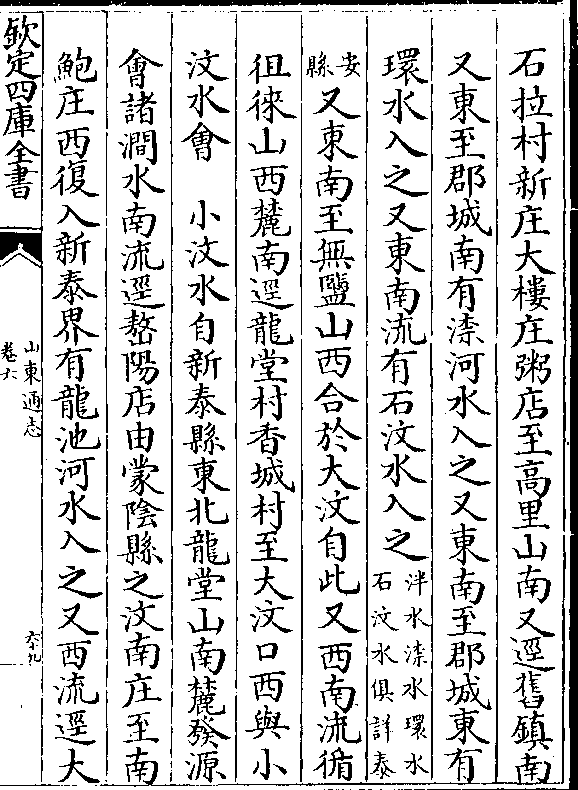 石拉村新庄大樓庄粥店至高里山南又逕舊鎮南
又東至郡城南有渿河水入之又東南至郡城東有
環水入之又東南流有石汶水入之泮水渿水環水石汶水俱詳泰
安縣又東南至無鹽山西合於大汶自此又西南流循
徂徠山西麓南逕龍堂村香城村至大汶口西與小
汶水會　小汶水自新泰縣東北龍堂山南麓發源
會諸澗水南流逕嶅陽店由蒙陰縣之汶南庄至南
鮑庄西復入新泰界有龍池河水入之又西流逕大
欽定四庫全書
山東通志
卷六